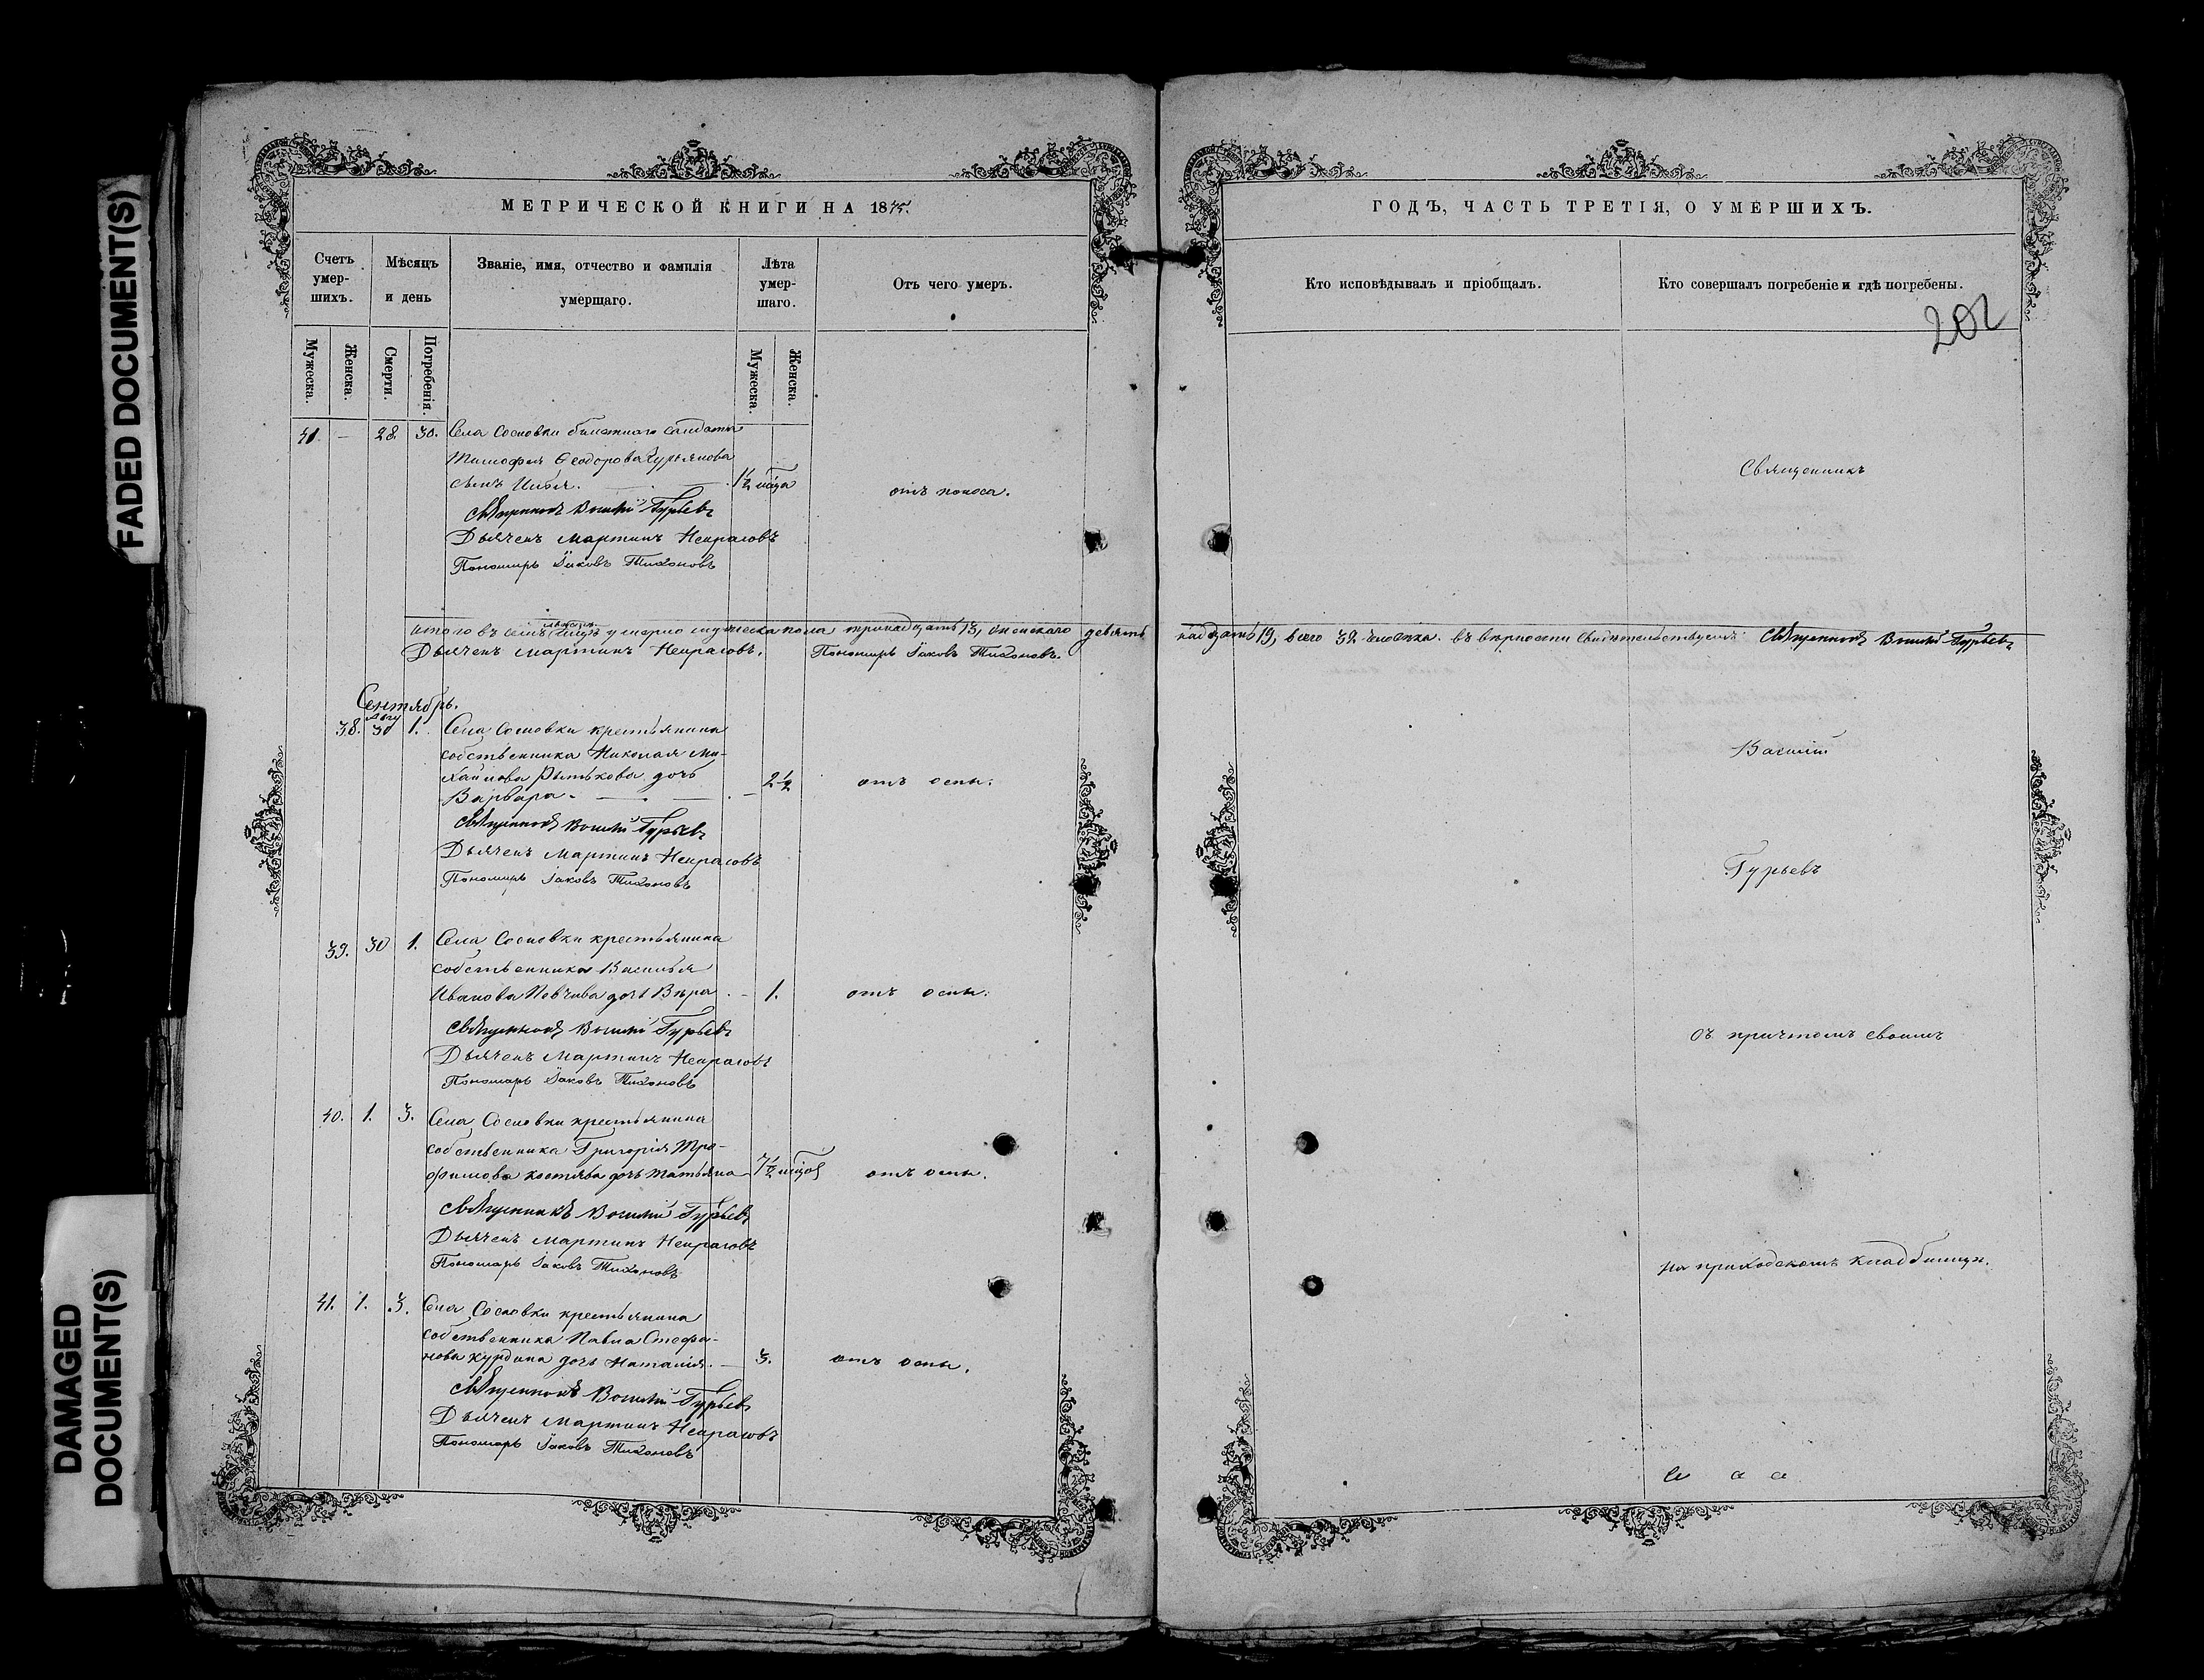 FADED DOCUMENT(S)
DAMAGED
DOCUMENT(S)
МЕТРИЧЕСКОЙ КНИГИ НА 1875.
Счетъ
умер-
шихъ.
Мѣсяцъ
и день
Званіе, имя, отчество и фамилія
умершаго.
Лѣта
умер-
шаго.
Отъ чего умеръ.
Мужеска.
Женска.
Смерти.
Погребенія.
Мужеска.
Женска.
41. — 28. 30. Села Сосновки билетнаго солдата
Тимофея Ѳеодорова Гурьянова
сынъ Илья. 1½ мѣца отъ поноса.
Священникъ Василій Гурьевъ
Дьячекъ Мартинъ Некрасовъ
Пономарь Іаковъ Тихоновъ
Итого въ семъ мѣсяцѣ умерло мужеска пола тринадцать 13, женскаго девять
Дьячекъ Мартинъ Некрасовъ. Пономарь Іаковъ Тихоновъ.
Сентябрь.
Авгу
38. 30 1. Села Сосновки крестьянина
собственника Николая Ми-
хайлова Рытькова дочь
Варвара — 2½ отъ оспы.
Священникъ Василій Гурьевъ
Дьячекъ Мартинъ Некрасовъ
Пономарь Іаковъ Тихоновъ
39. 30 1. Села Сосновки крестьянина
собственника Василья
Иванова дочь Вѣра. — 1. отъ оспы.
Священникъ Василій Гурьевъ
Дьячекъ Мартинъ Некрасовъ
Пономарь Іаковъ Тихоновъ
40. 1. 3. Села Сосновки крестьянина
собственника Григорія Тро-
фимова дочь Татьяна 7½ мѣцовъ отъ оспы.
Священникъ Василій Гурьевъ
Дьячекъ Мартинъ Некрасовъ
Пономарь Іаковъ Тихоновъ
41. 1. 3. Села Сосновки крестьянина
собственника Павла Стефа-
нова Курдина дочь Наталія. — 3. отъ оспы.
Священникъ Василій Гурьевъ
Дьячекъ Мартинъ Некрасовъ
Пономарь Іаковъ Тихоновъ
ГОДЪ, ЧАСТЬ ТРЕТІЯ, О УМЕРШИХЪ.
Кто исповѣдывалъ и пріобщалъ.
Кто совершалъ погребеніе и гдѣ погребены.
202
Священникъ
надцать 19, всего 32 человѣка. въ вѣрности свидѣтельствуемъ: Священникъ Василій Гурьевъ
Василій
Гурьевъ
съ причтомъ своимъ
на приходскомъ кладбищѣ.